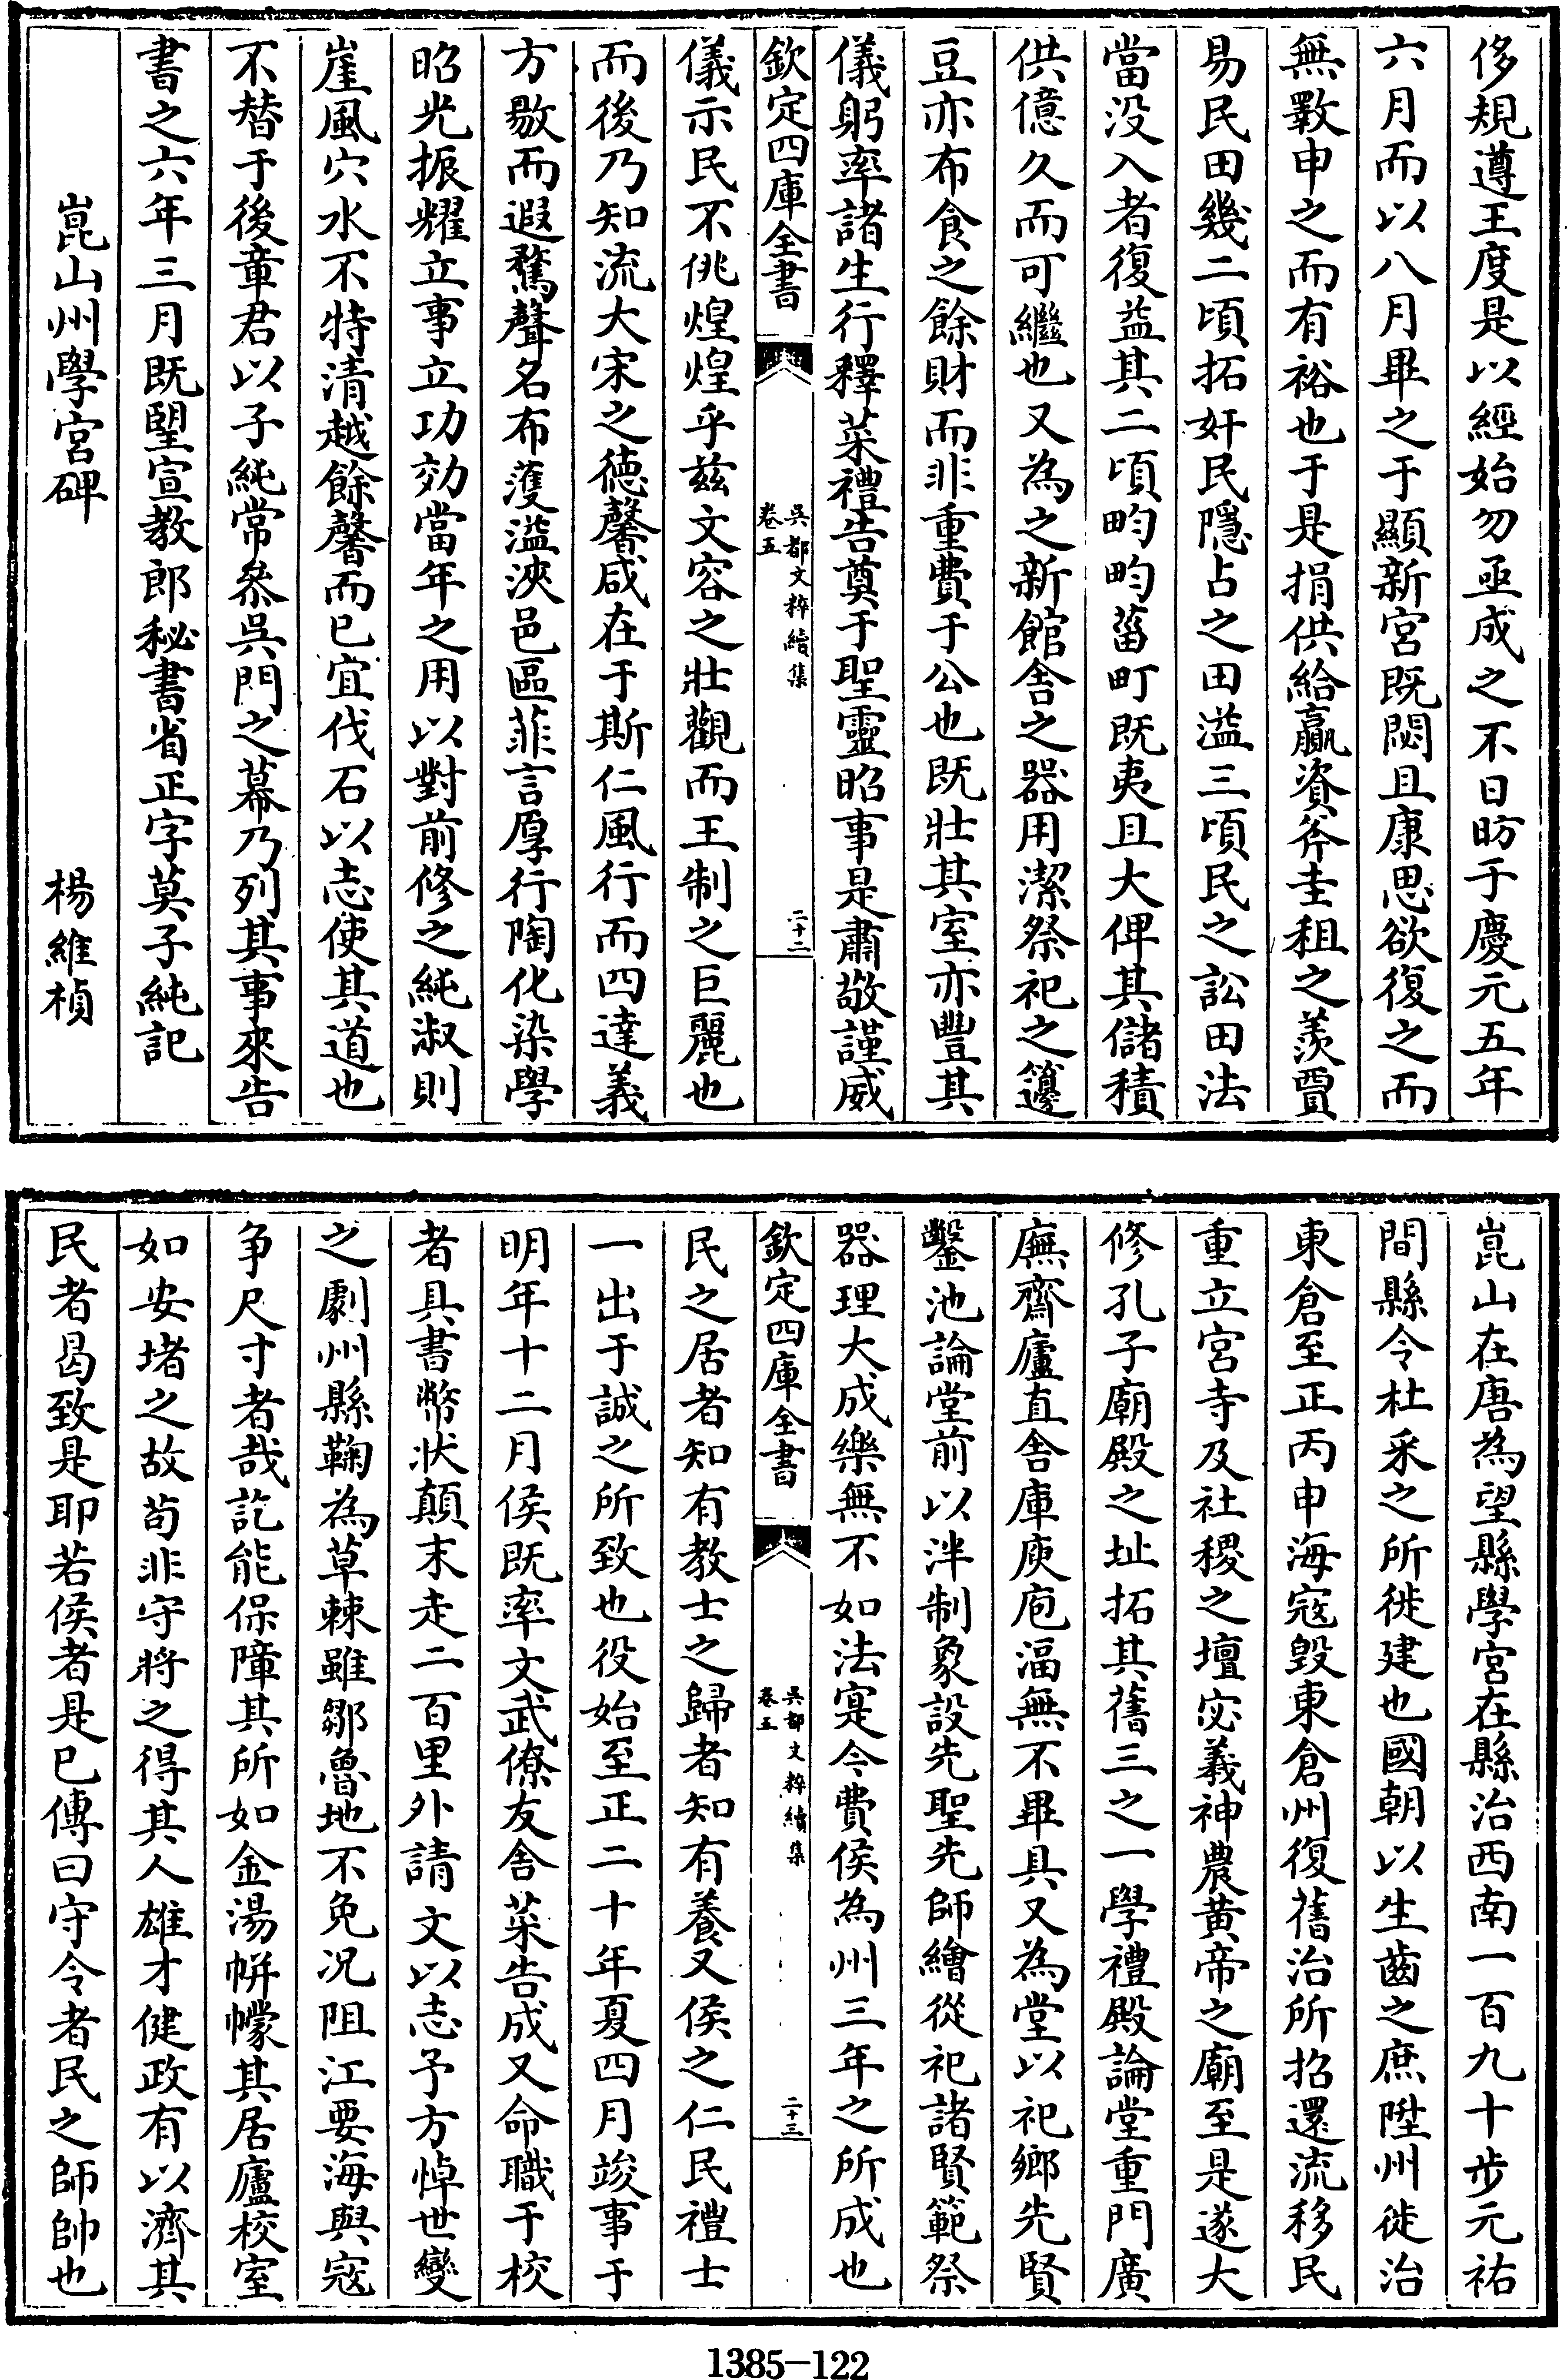 侈規遵王度是以經始勿亟成之不日昉于慶元五年
六月而以八月畢之于顯新宮既閟且康思欲復之而
無斁申之而有裕也于是捐供給贏資斧圭租之羨賈
易民田幾二頃拓奸民隠占之田溢三頃民之訟田法
當没入者復益其二頃畇畇葘町既夷且大俾其儲積
供億久而可繼也又為之新館舎之器用潔祭祀之籩
豆亦布食之餘財而非重費于公也既壯其室亦豐其
儀躬率諸生行釋菜禮告奠于聖靈昭事是肅敬謹威
欽定四庫全書
吳都文粹續集
卷五
二十二
儀示民不佻煌煌乎兹文容之壯觀而王制之巨麗也
而後乃知流大宋之德馨咸在于斯仁風行而四達義
方敭而遐騖聲名布濩溢浹邑區菲言厚行陶化染學
昭光振耀立事立功効當年之用以對前修之純淑則
崖風穴水不特清越餘馨而已宜伐石以志使其道也
不替于後章君以子純常叅吳門之幕乃列其事來告
書之六年三月既朢宣教郎秘書省正字莫子純記
崑山州學宮碑
楊維楨
崑山在唐為望縣學宮在縣治西南一百九十步元祐
間縣令杜釆之所徙建也國朝以生齒之庶陞州徙治
東倉至正丙申海寇毁東倉州復舊治所招還流移民
重立宮寺及社稷之壇宓羲神農黄帝之廟至是遂大
修孔子廟殿之址拓其舊三之一學禮殿論堂重門廣
廡齋廬直舎庫庾庖湢無不畢具又為堂以祀鄉先賢
鑿池論堂前以泮制象設先聖先師繪從祀諸賢範祭
器理大成樂無不如法寔今費侯為州三年之所成也
欽定四庫全書
吳都文粹續集
卷五
二十三
民之居者知有教士之歸者知有養又侯之仁民禮士
一出于誠之所致也役始至正二十年夏四月竣事于
明年十二月侯既率文武僚友舎菜告成又命職于校
者具書幣状顛末走二百里外請文以志予方悼世變
之劇州縣鞠為草棘雖鄒魯地不免况阻江要海與寇
争尺寸者哉訖能保障其所如金湯帡幪其居廬校室
如安堵之故茍非守將之得其人雄才健政有以濟其
民者曷致是耶若侯者是已傳曰守令者民之師帥也
1385—122